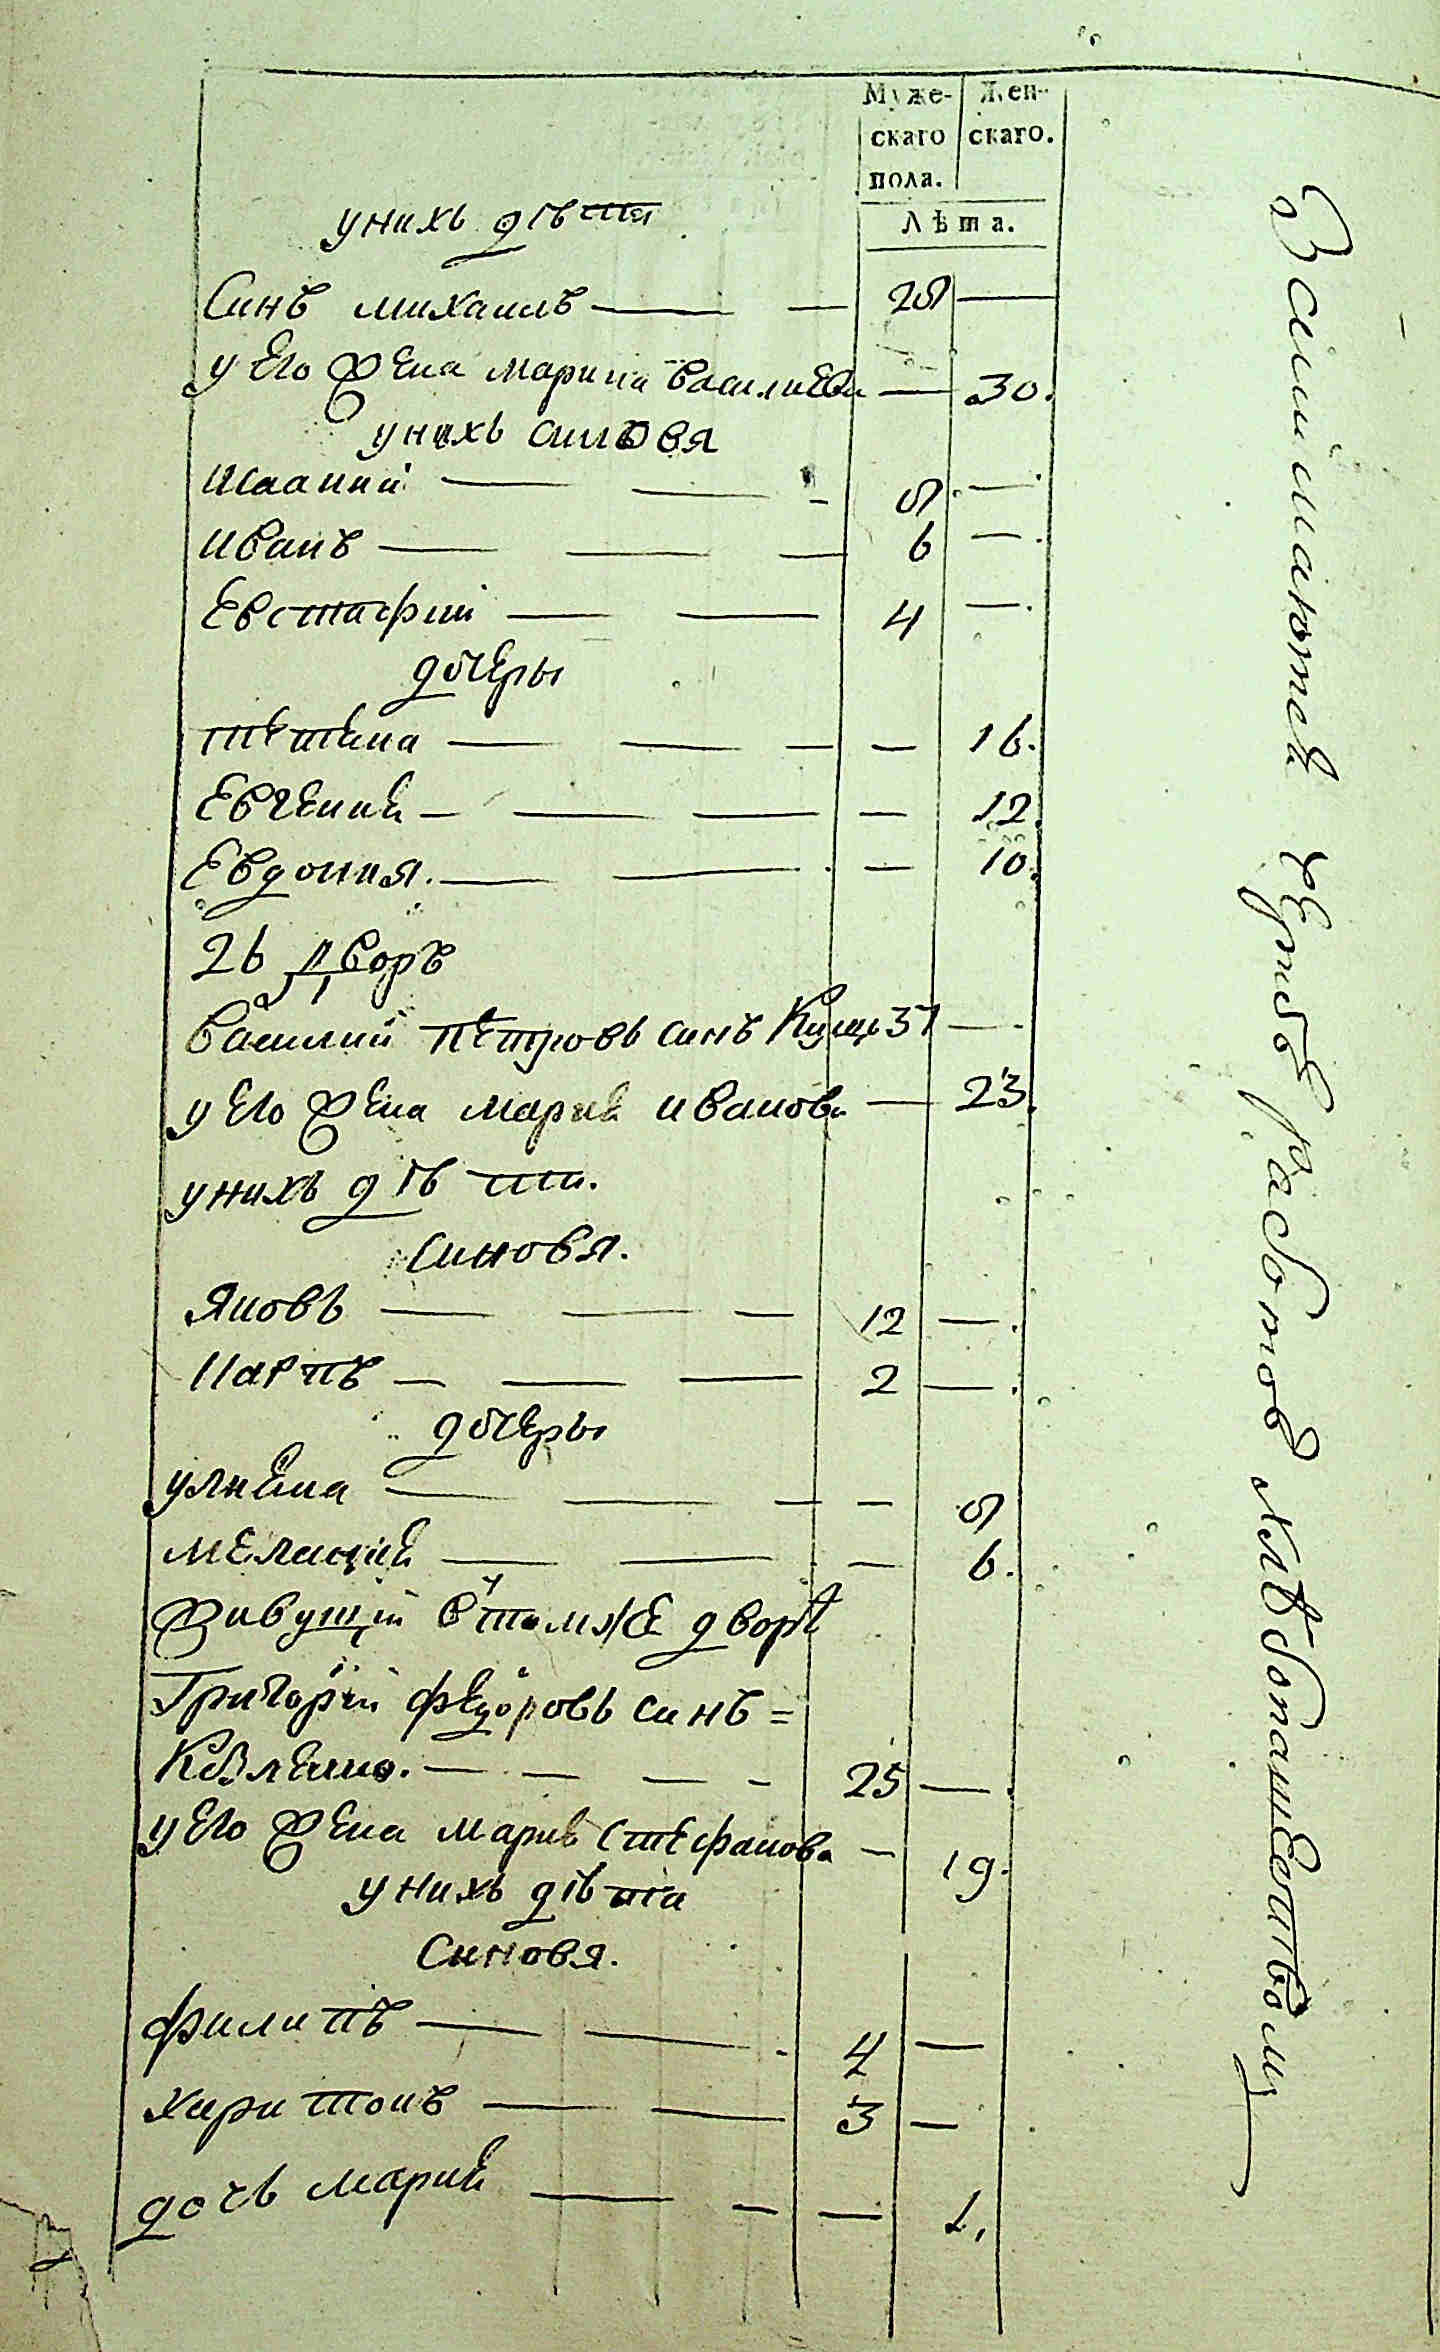 Муже-
скаго
пола.
Жен-
скаго.
Лѣта.
у нихъ дѣти
Синъ михаилъ — — 28 —
у Его жена марина василиева — 30.
у нихъ синовя
исаакий — — - 8 —
иванъ — — — 6 —
Евстафий — — 4 —
дочеры
тетяна — — — — 16.
Евгения — — — — 12.
Евдокия. — — — 10.
26 дворъ
василий петровъ синъ 37 —
у Его жена мария иванова — 23.
у нихъ дѣти.
синовя.
Яковъ — — — 12 —
Карпъ — — — 2 —
дочеры
уляна — — — — 8
мелания — — — 6.
живущій в томже дворѣ
Григорій феодоровъ синъ =
Козленко. — — — - 25 —
у Его жена мария стефанова — 19.
у нихъ дѣти
Синовя.
филипъ — — - 4 —
харитонъ — — 3 —
дочь мария — — — 1.
Занимаются чернов работов хлѣбопашествомъ